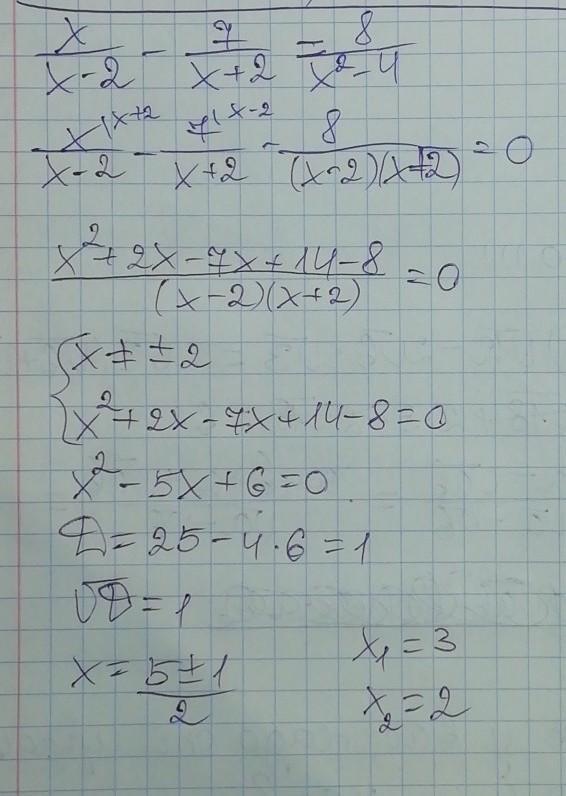 x/(x-2) - 7/(x+2) = 8/(x²-4)
x^(x+2)/(x-2) - 7^(x-2)/(x+2) - 8/((x-2)(x+2)) = 0
(x²+2x-7x+14-8)/((x-2)(x+2)) = 0
{ x ≠ ±2
x²+2x-7x+14-8=0
x²-5x+6=0
D=25-4·6=1
√D=1
x=(5±1)/2
x₁=3
x₂=2